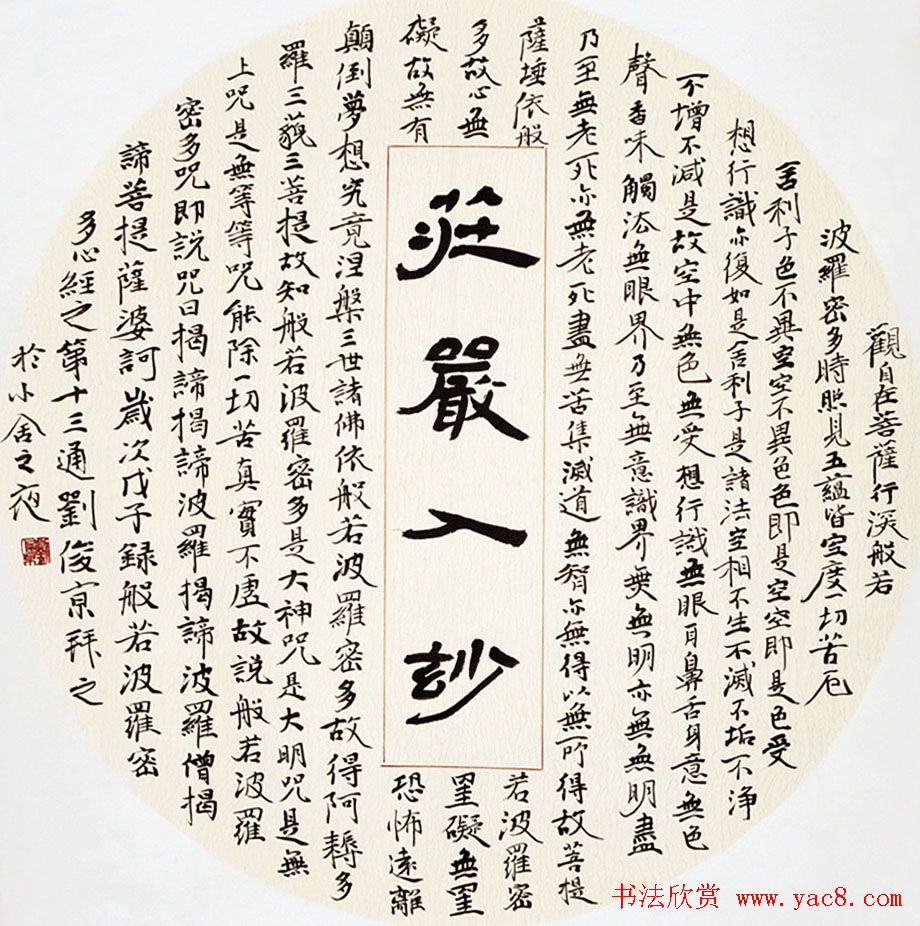 觀自在菩薩行深般若
波羅密多時照見五蘊皆空度一切苦厄
舍利子色不異空空不異色色即是空空即是色受
想行識亦復如是舍利子是諸法空相不生不滅不垢不淨
不增不減是故空中無色無受想行識無眼耳鼻舌身意無色
聲香味觸法無眼界乃至無意識界無無明亦無無明盡
乃至無老死亦無老死盡無苦集滅道無智亦無得以無所得故菩提
薩埵依般
若波羅密
多故心無
罣礙無罣
礙故無有
恐怖遠離
莊嚴入玅
顛倒夢想究竟涅槃三世諸佛依般若波羅密多故得阿耨多
羅三藐三菩提故知般若波羅密多是大神咒是大明咒是無
上咒是無等等咒能除一切苦真實不虛故說般若波羅
密多咒即說咒曰揭諦揭諦波羅揭諦波羅僧揭
諦菩提薩婆訶歲次戊子錄般若波羅密
多心經之第十三通劉俊京拜之
於小舍之夜
书法欣赏 www.yac8.com